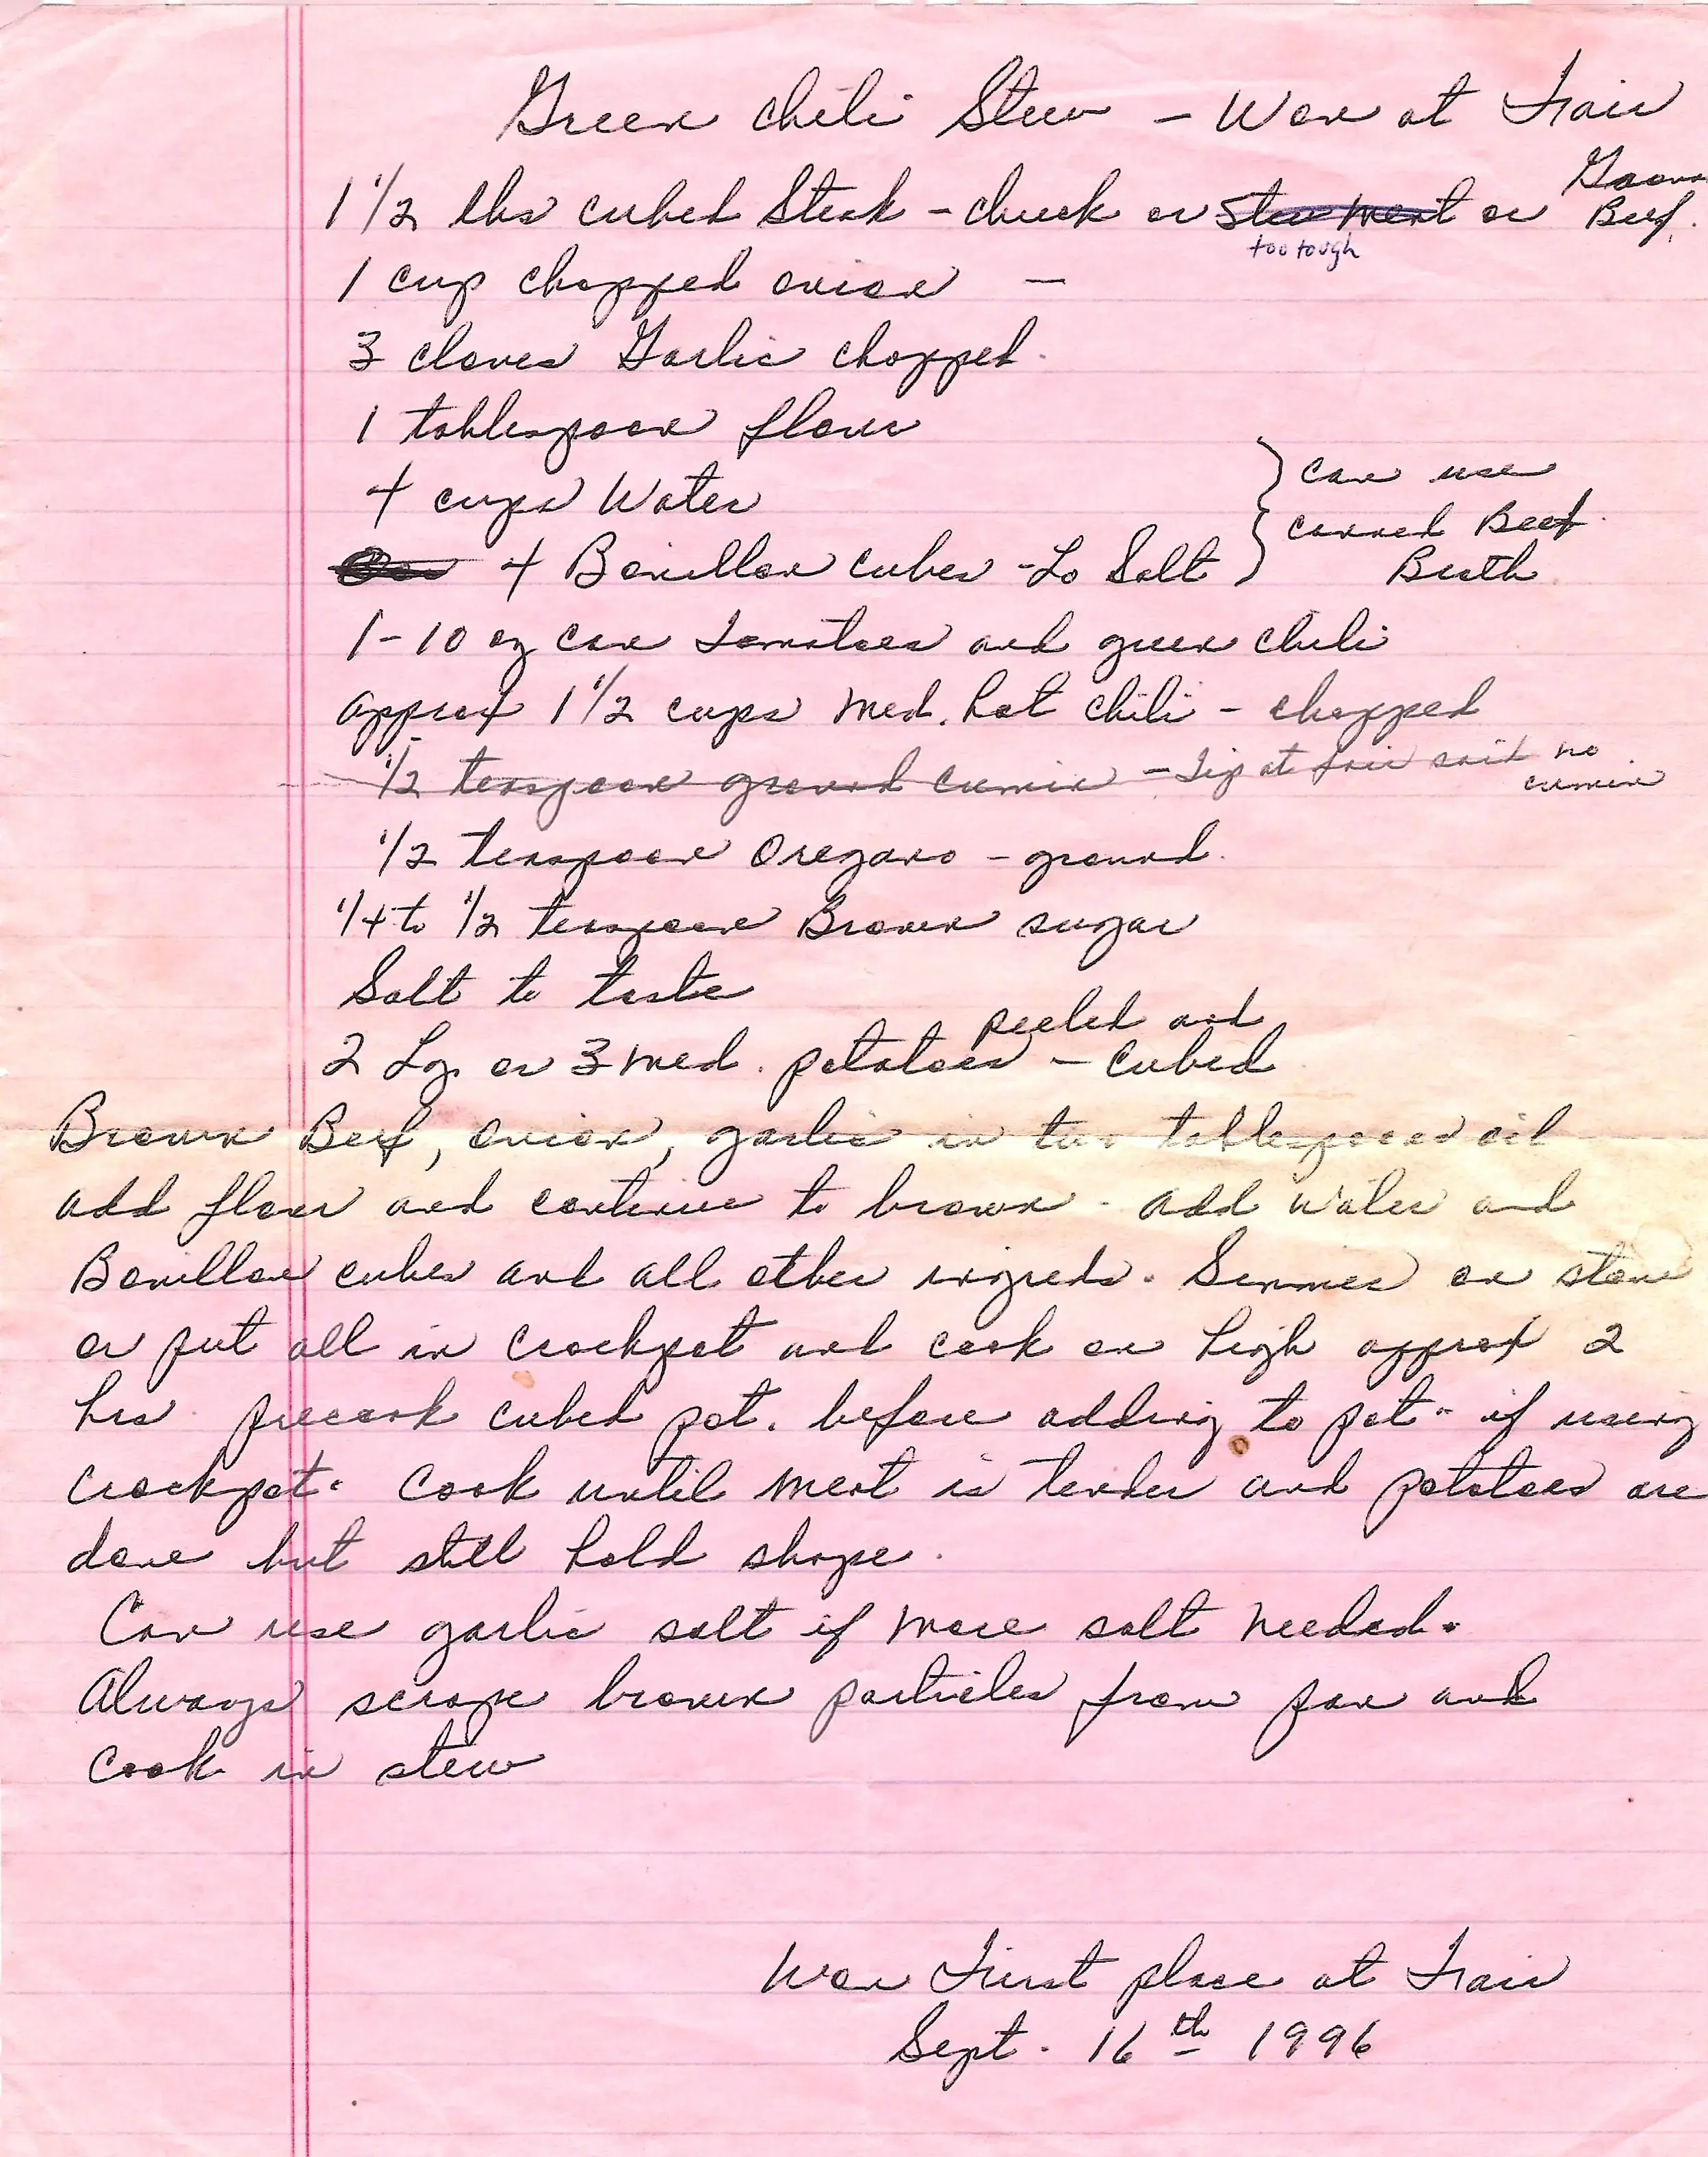 Green Chili Stew - Won at Fair
1 1/2 lbs cubed Steak - chuck or stew meat or Ground Beef.
too tough
1 cup chopped onion -
3 cloves Garlic chopped.
1 tablespoon flour
4 cups Water
4 Bouillon cubes - Lo Salt } can use canned Beef Broth
1-10 oz can Tomatoes and green chili
approx 1 1/2 cups med. hot chili - chopped
1/2 teaspoon ground cumin - Tip at fair said no cumin
1/2 teaspoon Oregano - ground.
1/4 to 1/2 teaspoon Brown sugar
Salt to taste
2 Lg. or 3 med. potatoes - peeled and cubed
Brown Beef, onion, garlic in two tablespoons oil
add flour and continue to brown - add water and
Bouillon cubes and all other ingreds. Simmer on stove
or put all in crockpot and cook on high approx 2
hrs. precook cubed pot. before adding to pot - if using
crockpot. Cook until meat is tender and potatoes are
done but still hold shape.
Can use garlic salt if more salt needed.
Always scrape brown particles from pan and
cook in stew
Won First place at Fair
Sept. 16th 1996